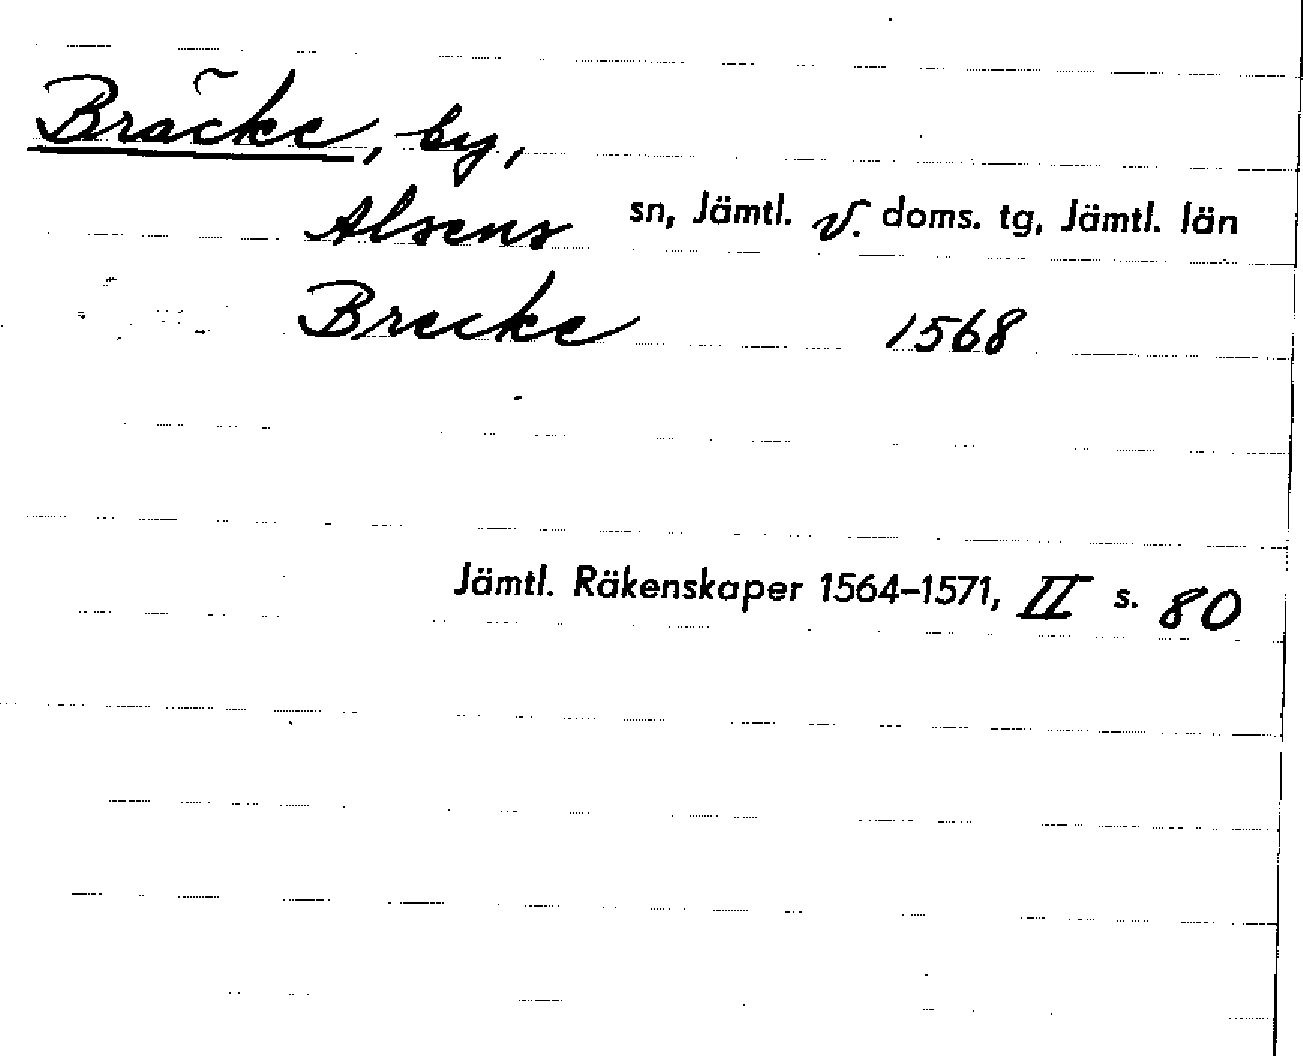 Bräcke, by,
Alsens sn, Jämtl. v. doms. tg, Jämtl. län
Brecke 1568
Jämtl. Räkenskaper 1564–1571, II s. 80